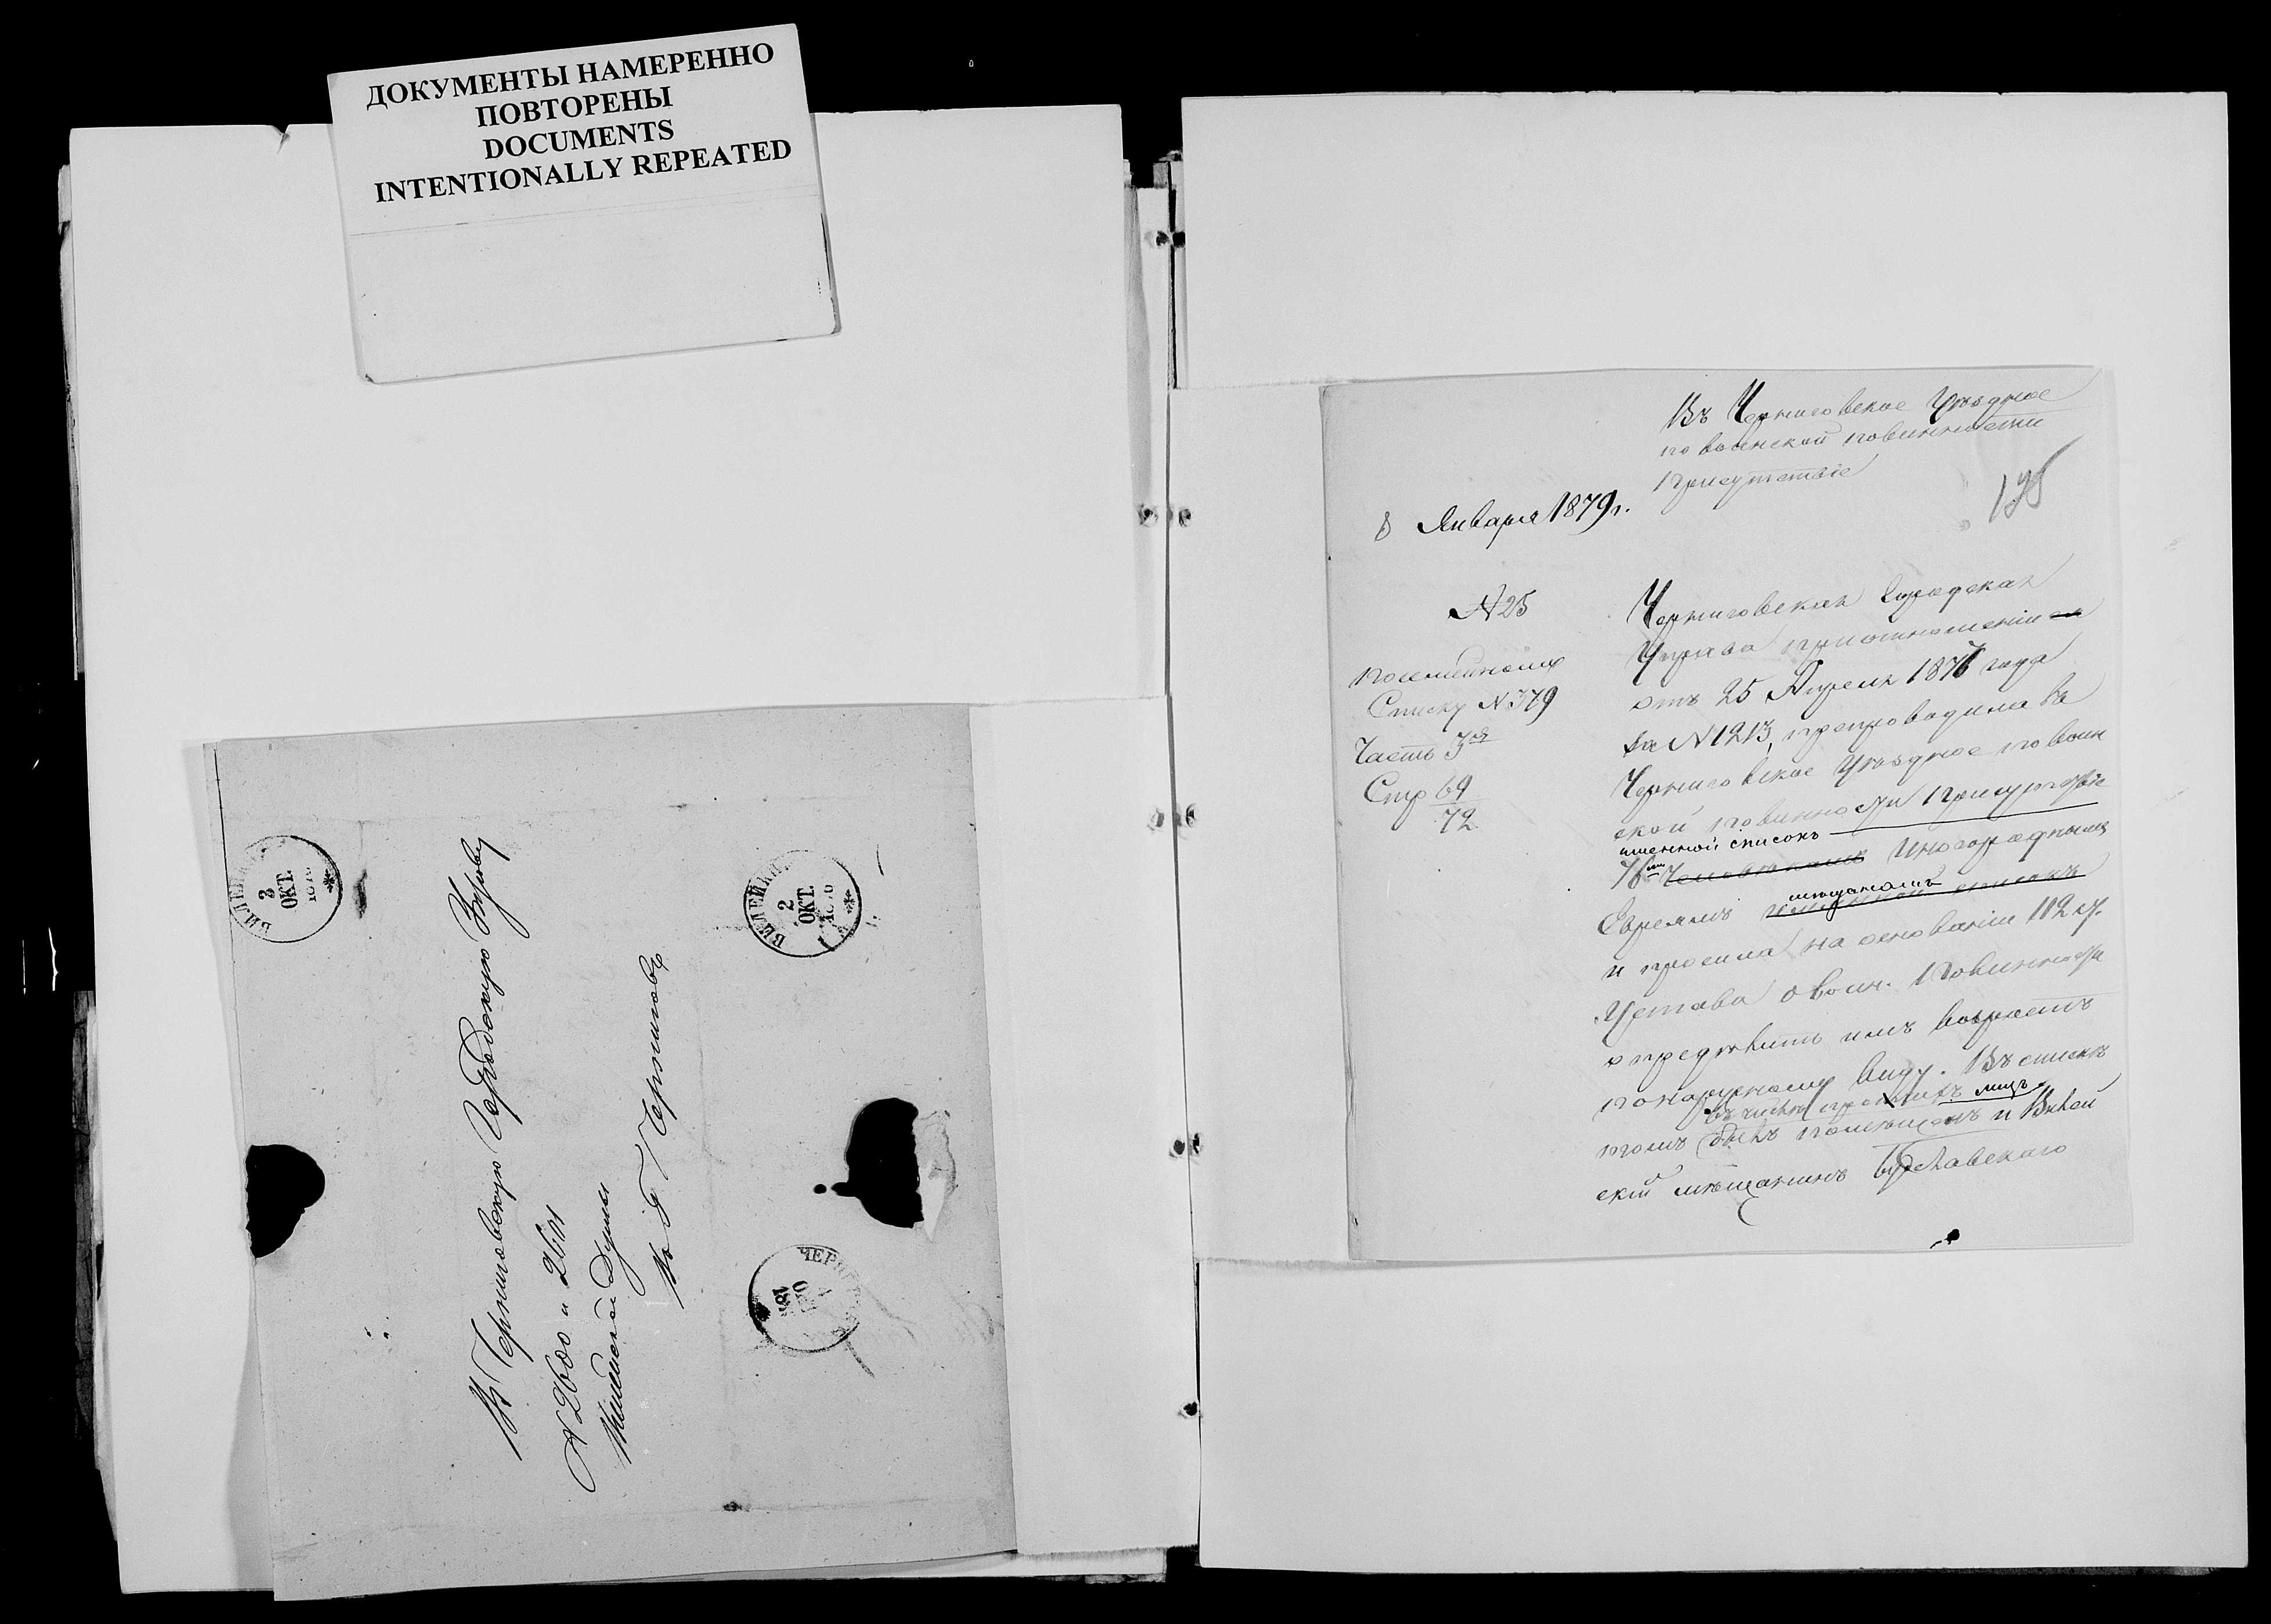 ДОКУМЕНТЫ НАМЕРЕННО
ПОВТОРЕНЫ
DOCUMENTS
INTENTIONALLY REPEATED
ВИЛЕЙКА
3
ОКТ.
ВИЛЕЙКА
2
ОКТ.
ЧЕРНИГОВ
Въ Черниговскую Городскую Управу
№ 2600 и 2601
Думы
Въ г. Черниговъ
Въ Черниговское Уѣздное
по воинской повинности
Присутствіе
8 Января 1879 г.
№ 25
Посемейному
Списку № 379
Часть 3я
Стр 69
72
Черниговская Городская
Управа при отношеніи
отъ 25 Апрѣля 1876 года
за № 1213, препроводила въ
Черниговское Уѣздное по воин
ской повинности Присутствіе
именной списокъ
76 Иногороднымъ
мѣщанамъ
Евреямъ именной списокъ
и просила на основаніи 112 ст.
Устава о воин. повинности
опредѣлить имъ возрастъ
по наружному виду. Въ списке
въ числѣ прочихъ лицъ
этомъ былъ помѣщенъ и Вилей
скій мѣщанинъ Будславскаго